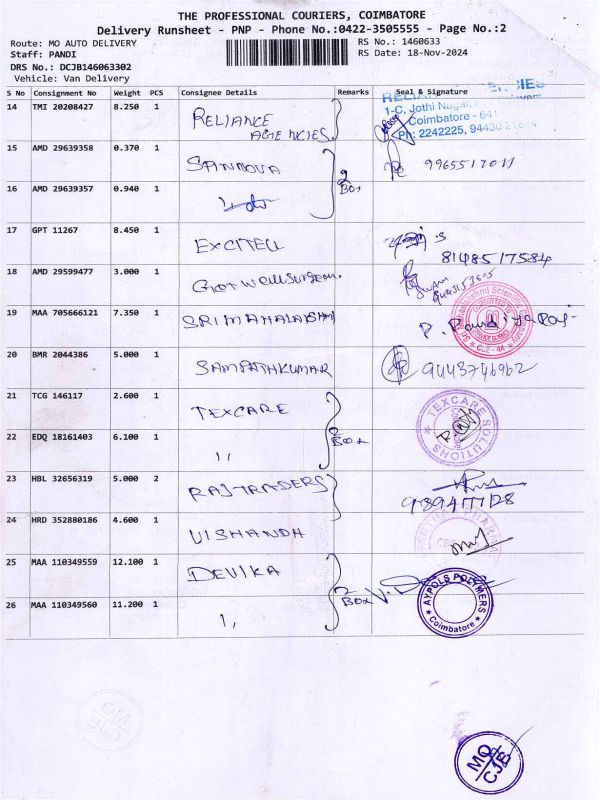 THE PROFESSIONAL COURIERS, COIMBATORE
Delivery Runsheet - PNP - Phone No.:0422-3505555 - Page No.:2
Route: MO AUTO DELIVERY RS No.: 1460633
Staff: PANDI RS Date: 18-Nov-2024
DRS No.: DCJB146063302
Vehicle: Van Delivery
S No Consignment No Weight PCS Consignee Details Remarks Seal & Signature
14 TMI 20208427 8.250 1 RELIANCE AGENCIES
1-C, Jothi Nagar,
Coimbatore - 641
Ph: 2242225, 94430
15 AMD 29639358 0.370 1 SANNOVA 2 Box 9965517011
16 AMD 29639357 0.940 1
17 GPT 11267 8.450 1 EXCITELL 8148517584
18 AMD 29599477 3.000 1 Getwellsurgeon.
19 MAA 705666121 7.350 1 SRIMAHALAKSHMI P. Pandiyaraj
20 BMR 2044386 5.000 1 SAMPATHKUMAR 9443746962
21 TCG 146117 2.600 1 TEXCARE 2 Box TEXCARE SOLUTIONS
22 EDQ 18161403 6.100 1 ,,
23 HBL 32656319 5.000 2 RAJTRADERS
24 HRD 352880186 4.600 1 VISHANDH
25 MAA 110349559 12.100 1 DEVIKA 2 Box AYPOLS POLYMERS Coimbatore
26 MAA 110349560 11.200 1 ,,
MO
CJB